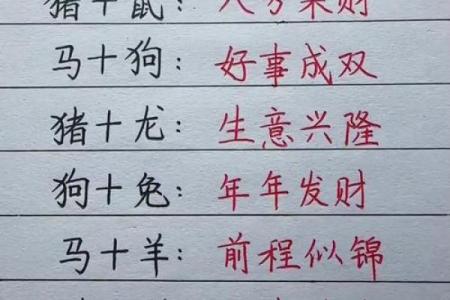 猪十鼠：八方来财
马十狗：好事成双
猪十龙：生意兴隆
狗十兔：年年发财
马十羊：前程似锦